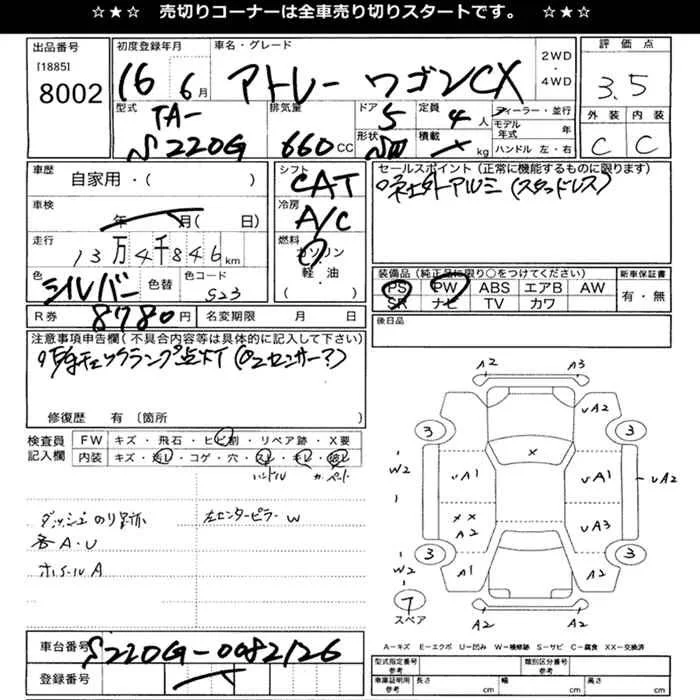 ☆★☆ 売切りコーナーは全車売り切りスタートです。 ☆★☆
出品番号
[1885]
8002
初度登録年月
16 6月
車名・グレード
アトレーワゴンCX
2WD
・
4WD
評価点
3.5
外装 内装
C C
型式
TA-
S220G
排気量
660cc
ドア
5
形状
定員
4人
積載
kg
ディーラー・並行
モデル年式 年
ハンドル 左・右
車歴
自家用・( )
車検
年 月( 日)
走行
13万4千846km
色
シルバー
色替
色コード
S23
R券
8780円
名変期限 月 日
シフト
CAT
冷房
A/C
燃料
ガソリン
軽・油
( )
セールスポイント(正常に機能するものに限ります)
社外アルミ(スタッドレス)
装備品(純正品に限り○をつけてください)
PS PW ABS エアB AW
SR ナビ TV カワ
新車保証書
有・無
後日品
注意事項申告欄(不具合内容等は具体的に記入して下さい)
チェックランプ点灯(O2センサー?)
修復歴 有 〔箇所 〕
検査員
記入欄
FW キズ・飛石・ヒビ割・リペア跡・X要
内装 キズ・汚レ・コゲ・穴・スレ・キレ・
ハンドル カーペット
ダッシュのり跡
各A・U
ホイールA
左センターピラーW
A2 A3
vA2
3 3
W2
vA1 vA1
x
vA2
xx
A2
vA3
3 3
W2
A1 A2
7
スペア
A2 A2
A-キズ E-エクボ U-凹み W-補修跡 S-サビ C-腐食 XX-交換済
車台番号
S220G-0082126
登録番号
型式指定番号
参考
類別区分番号
参考
車庫証明用
参考
長さ cm
幅 cm
高さ cm